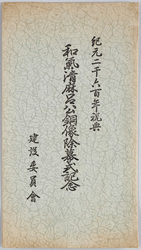 紀元二千六百年祝典
和氣清麻呂公銅像除幕式記念
建設委員會